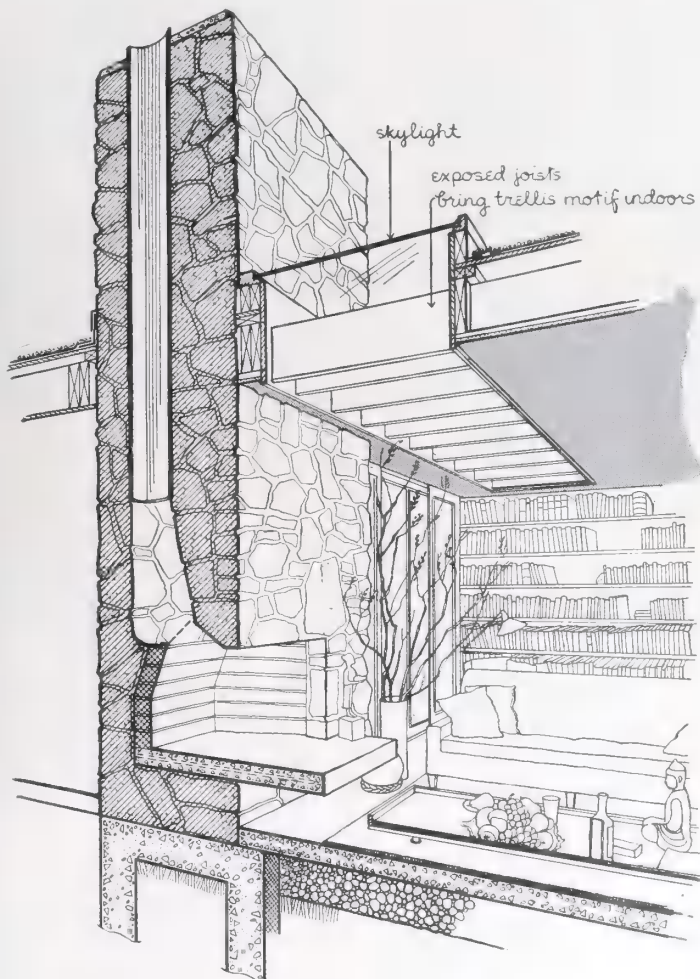 skylight
exposed joists
bring trellis motif indoors